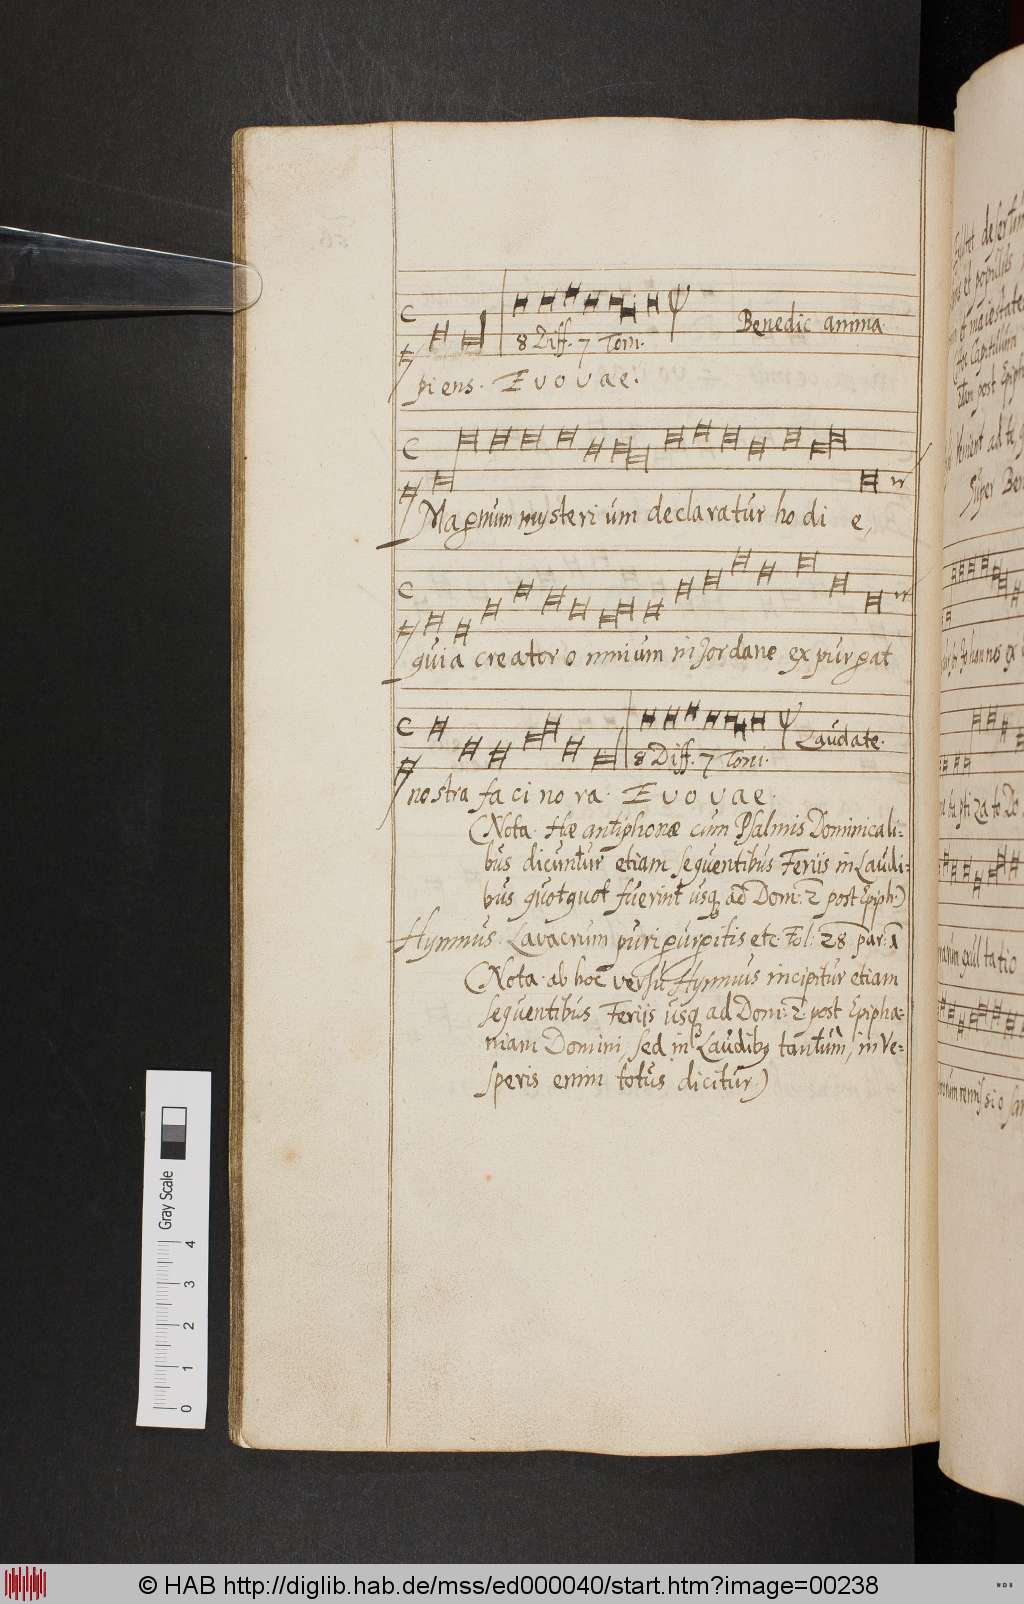 Benedic anima
8 Diff. 7 Toni.
piens. Evovae.
Magnum mysterium declaratur hodie,
quia creator omnium in Jordane expurgat
8 Diff. 7 Toni. Laudate.
nostra facinora. Evovae.
(Nota. Hæ antiphonæ cum Psalmis Dominicali-
bus dicuntur etiam sequentibus Ferijs in Laudi-
bus quotquot fuerint usq3 ad Dom: 2 post Epiph.)
Hymnus. Lavacrum puri gurgitis etc. Fol: 28. par: 1
(Nota. ab hoc versu Hymnus incipitur etiam
sequentibus Ferijs usq3 ad Dom: 2 post Epipha-
niam Domini, sed in Laudib9 tantùm, in Ve-
speris enim totus dicitur.)
Gray Scale
0 1 2 3 4
post Epiph
venient ad te
Super Ben
Johannes ex
baptizato Do
exultatio
remissio
© HAB http://diglib.hab.de/mss/ed000040/start.htm?image=00238